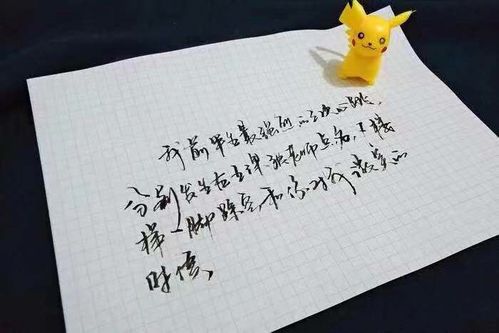 我前半生最强烈的三次心跳,
分别发生在上课被老师点名,下楼
梯一脚踩空和你对我说笑的
时候,